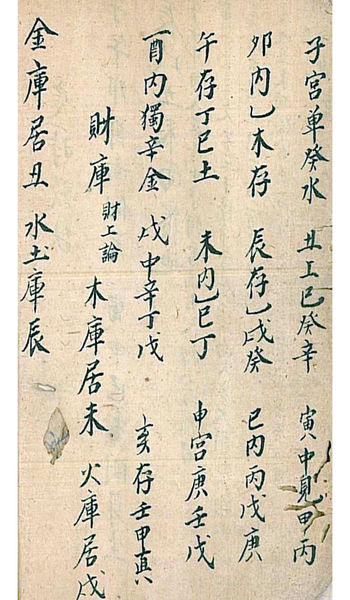 子宮單癸水 丑上巳癸辛 寅中見甲丙
卯內乙木存 辰存乙戊癸 巳內丙戊庚
午存丁巳土 未內乙巳丁 申宮庚壬戊
酉內獨辛金 戌中辛丁戊 亥存壬甲真
財庫 財上論 木庫居未 火庫居戌
金庫居丑 水土庫辰